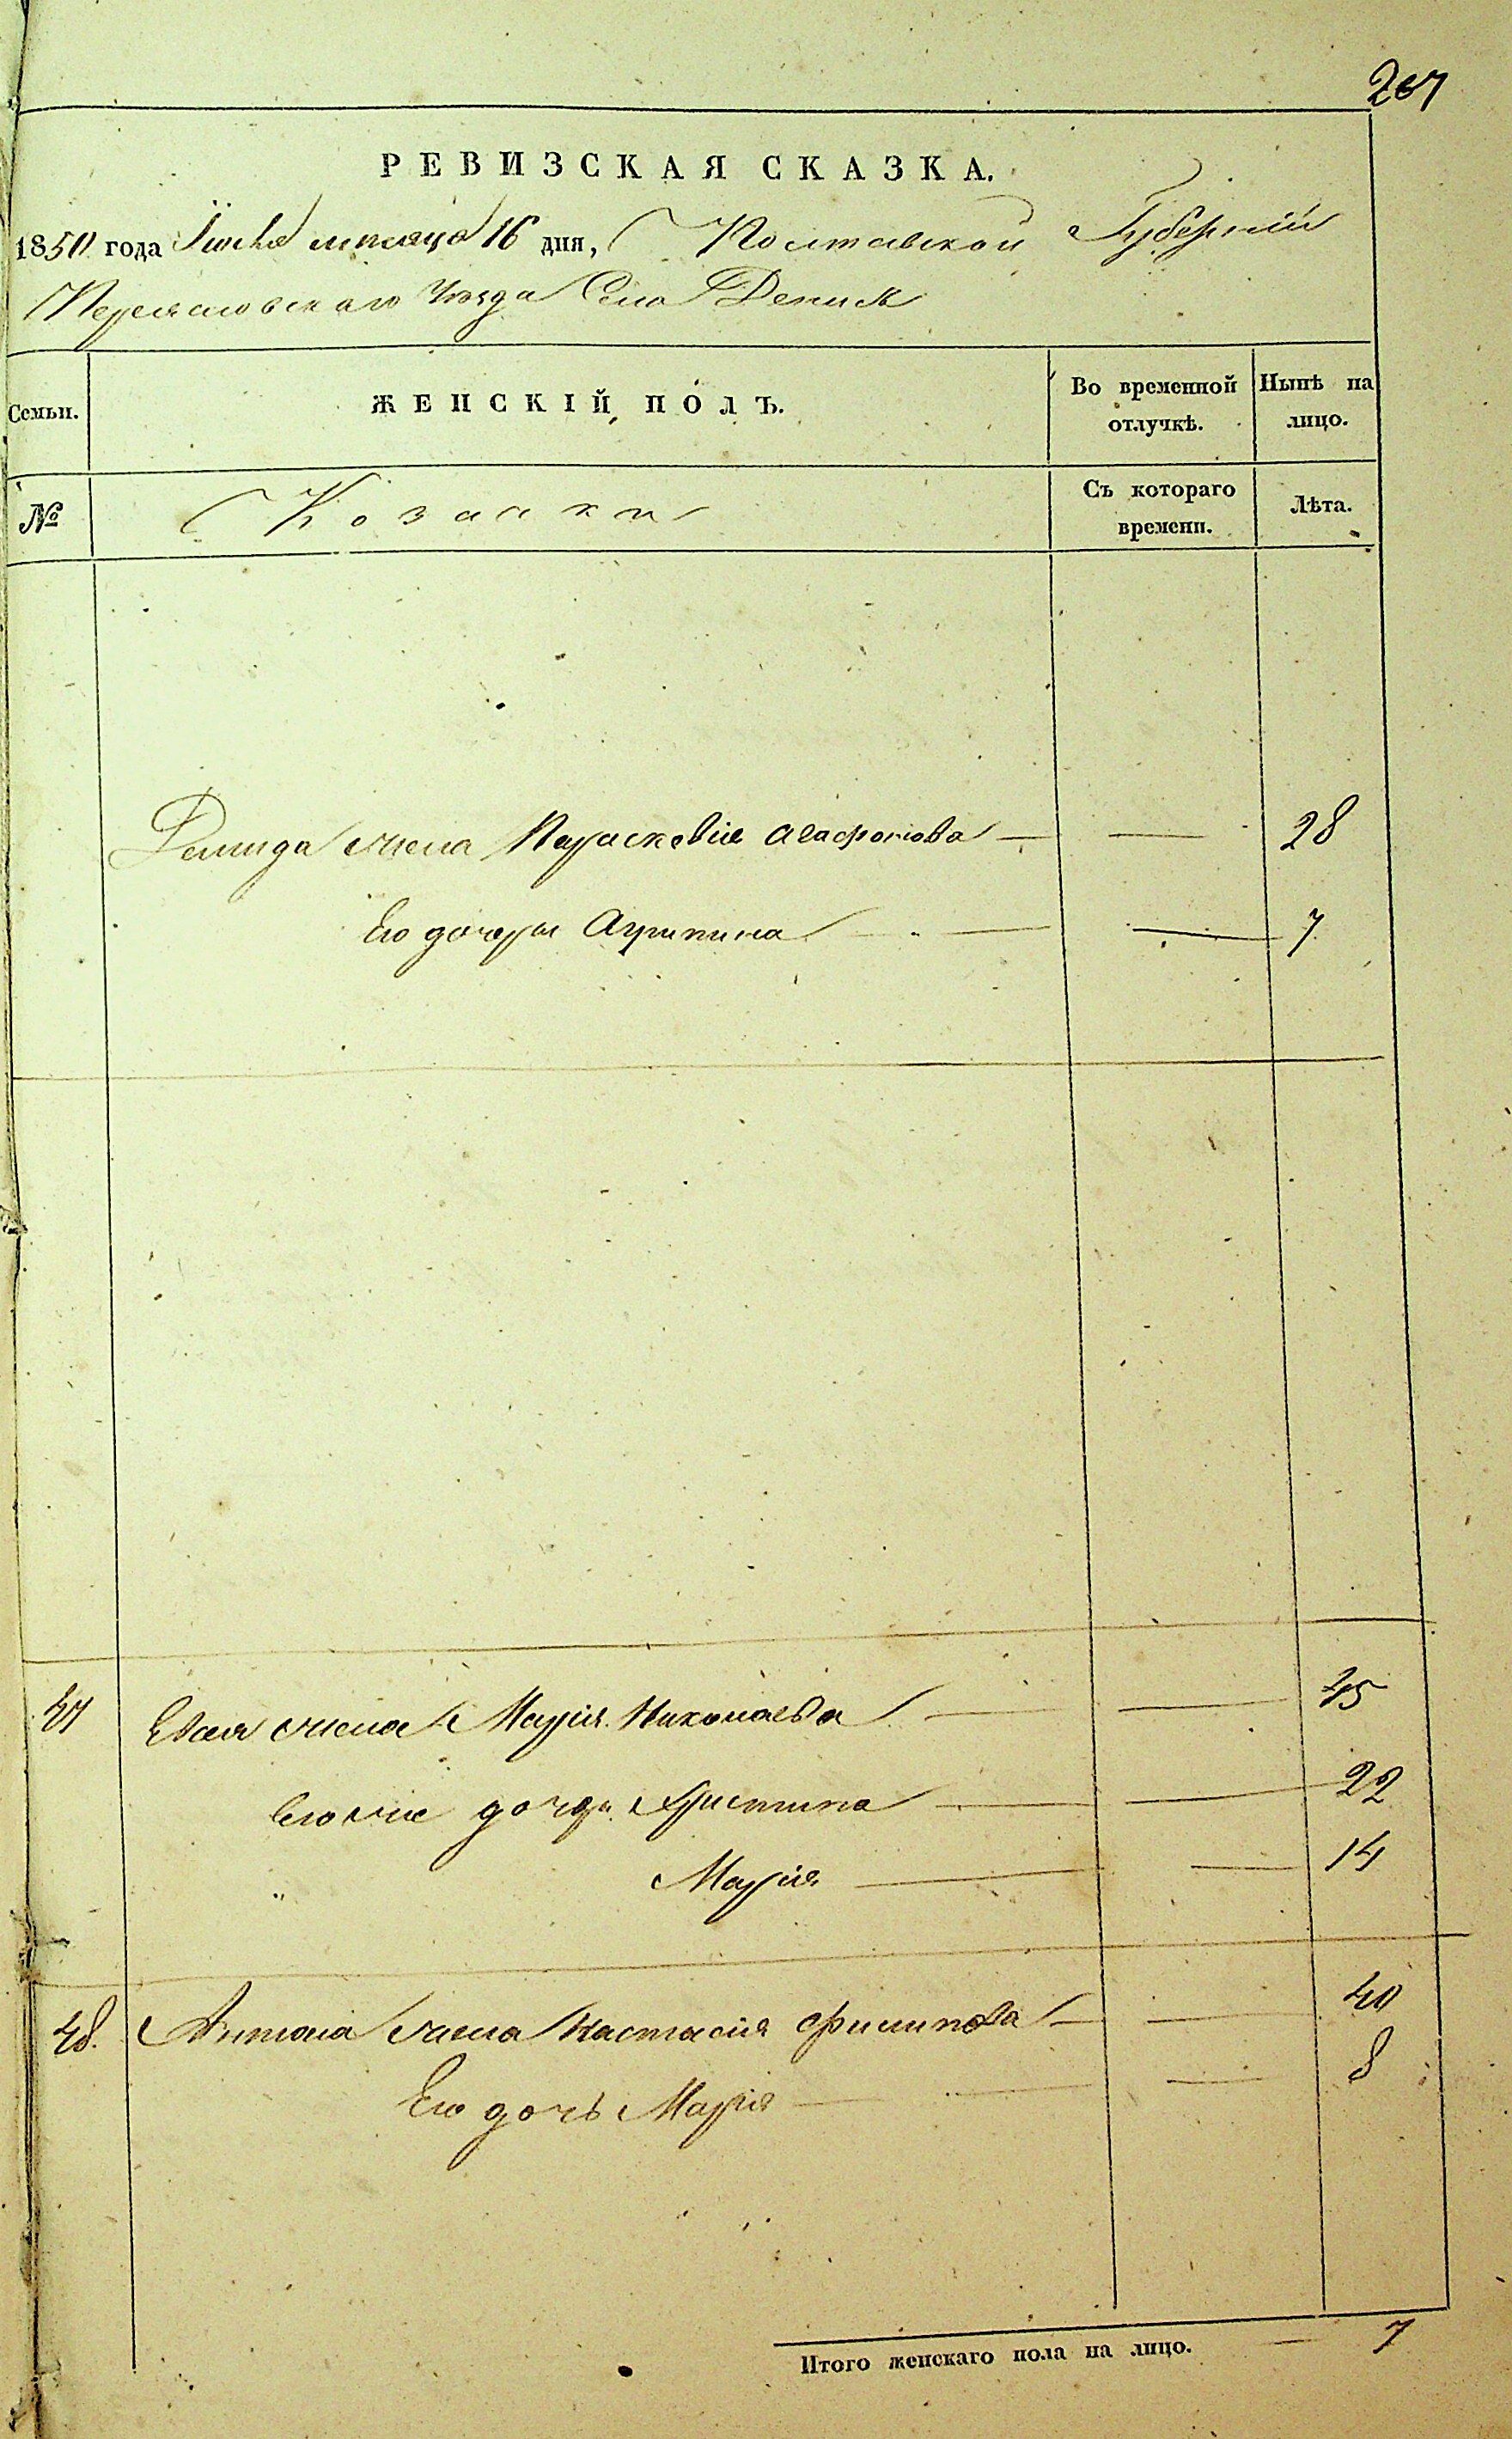 267
РЕВИЗСКАЯ СКАЗКА.
1850 года Июня месяца 16 дня, Полтавской Губернии
Переясловскаго Уезда Села Дениск
Семьи. ЖЕНСКІЙ ПОЛЪ. Во временной отлучкѣ. Нынѣ на лицо.
№ Козачки Съ котораго времени. Лѣта.
Демида жена Параскевія Агафонова — — 28
Его дочеры Агрипина — — 7
47 жена Марія Николаева — — 45
Его же дочери Христина — — 22
" Марія — — 14
48. Антона жена Настасія Филипова — — 40
Его дочь Марія — — 8
Итого женскаго пола на лицо. — 7